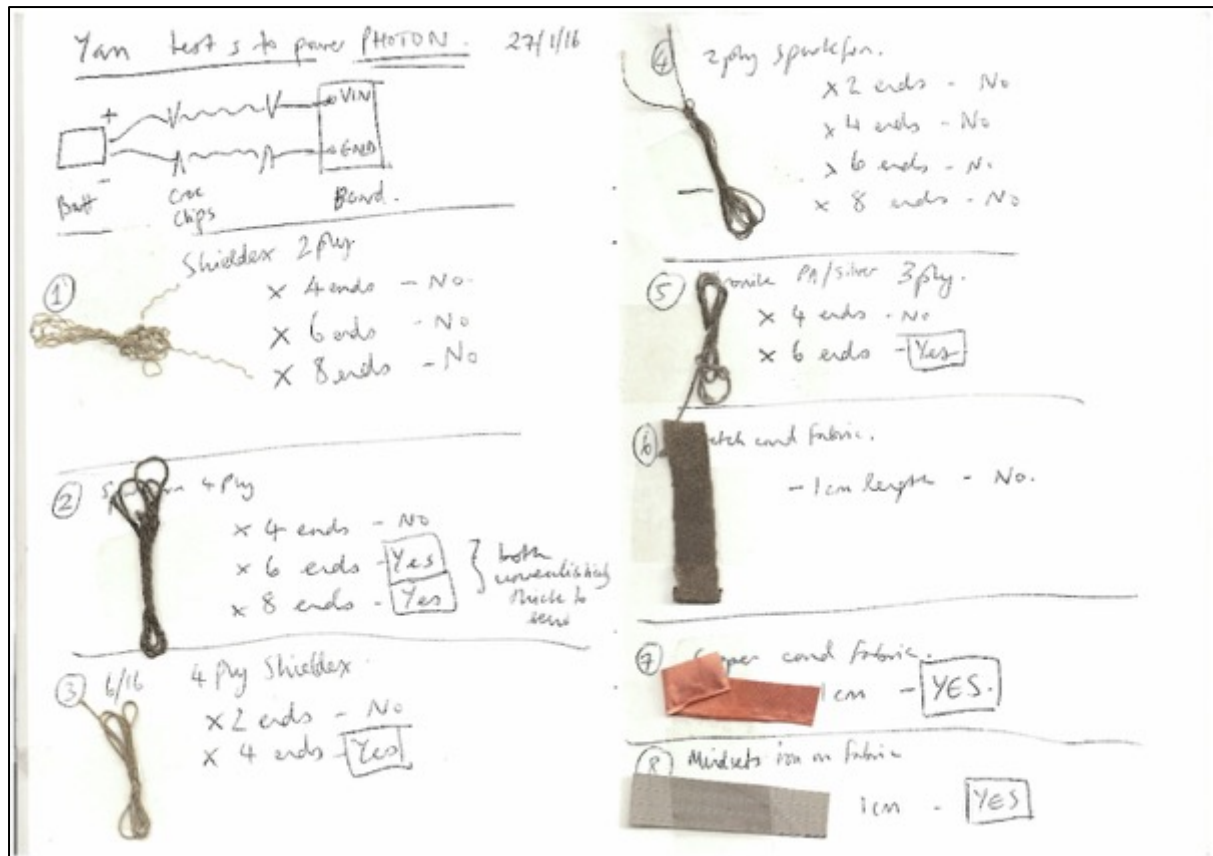 Yarn tests to power PHOTON. 27/1/16
+ VIN
- GND
Batt Croc Board.
Clips
① Shieldex 2 ply
x 4 ends - No.
x 6 ends - No
x 8 ends - No
② 4 Ply
x 4 ends - No
x 6 ends - Yes } both
x 8 ends - Yes unrealistically
thick to
sew
③ 6/16 4 Ply Shieldex
x 2 ends - No
x 4 ends - Yes
④ 2 ply Sparkfun.
x 2 ends - No
x 4 ends - No
x 6 ends - N.
x 8 ends - No
⑤ PA/Silver 3 ply.
x 4 ends - No
x 6 ends - Yes
⑥ etch cond fabric.
- 1cm length - No.
⑦ pper cond fabric.
1cm - YES.
⑧ Mindsets iron on fabric
1cm - YES